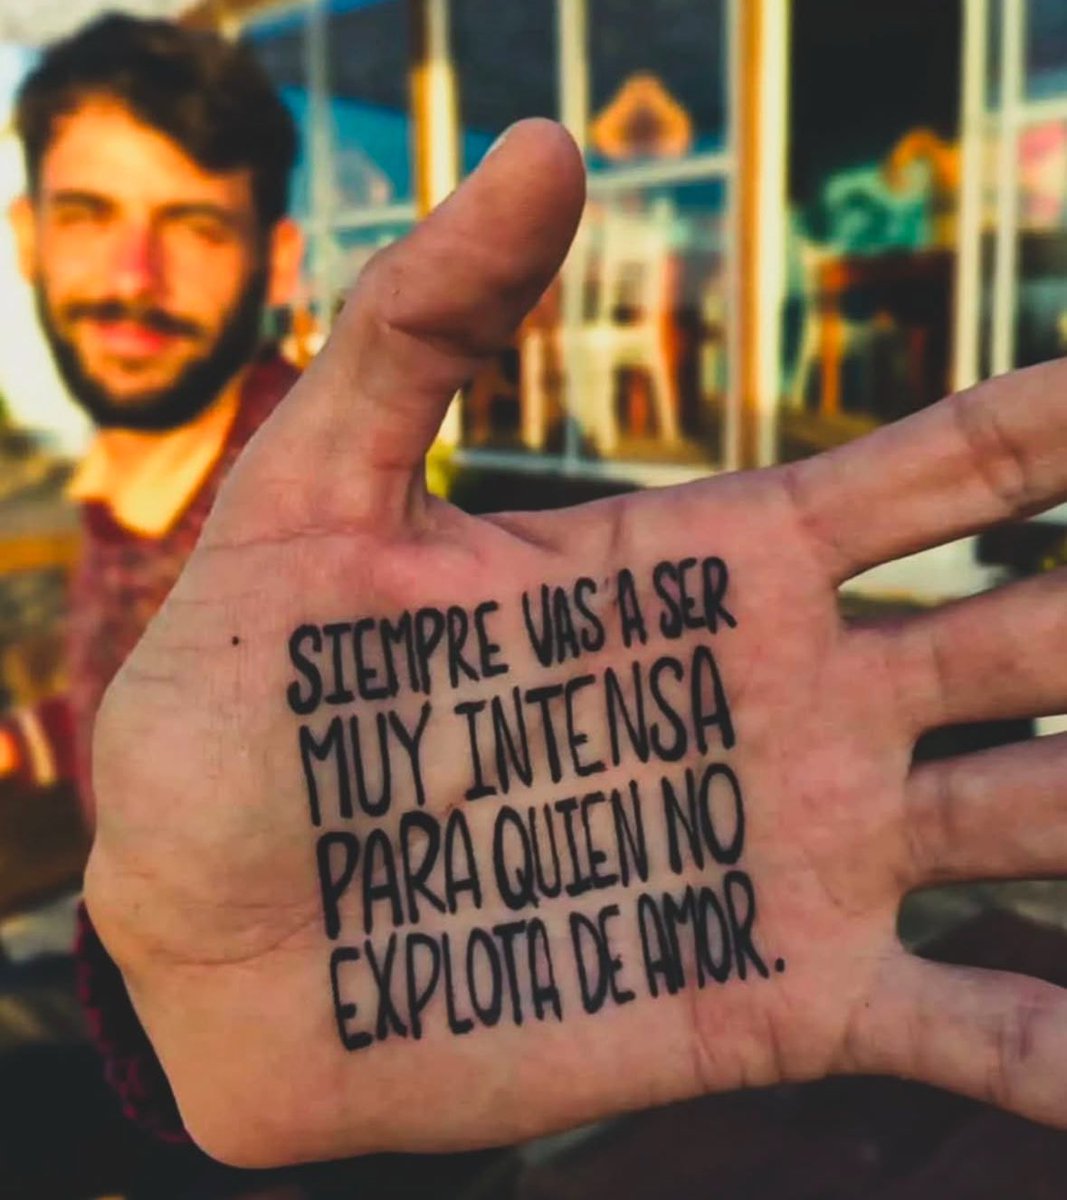 SIEMPRE VAS A SER
MUY INTENSA
PARA QUIEN NO
EXPLOTA DE AMOR.